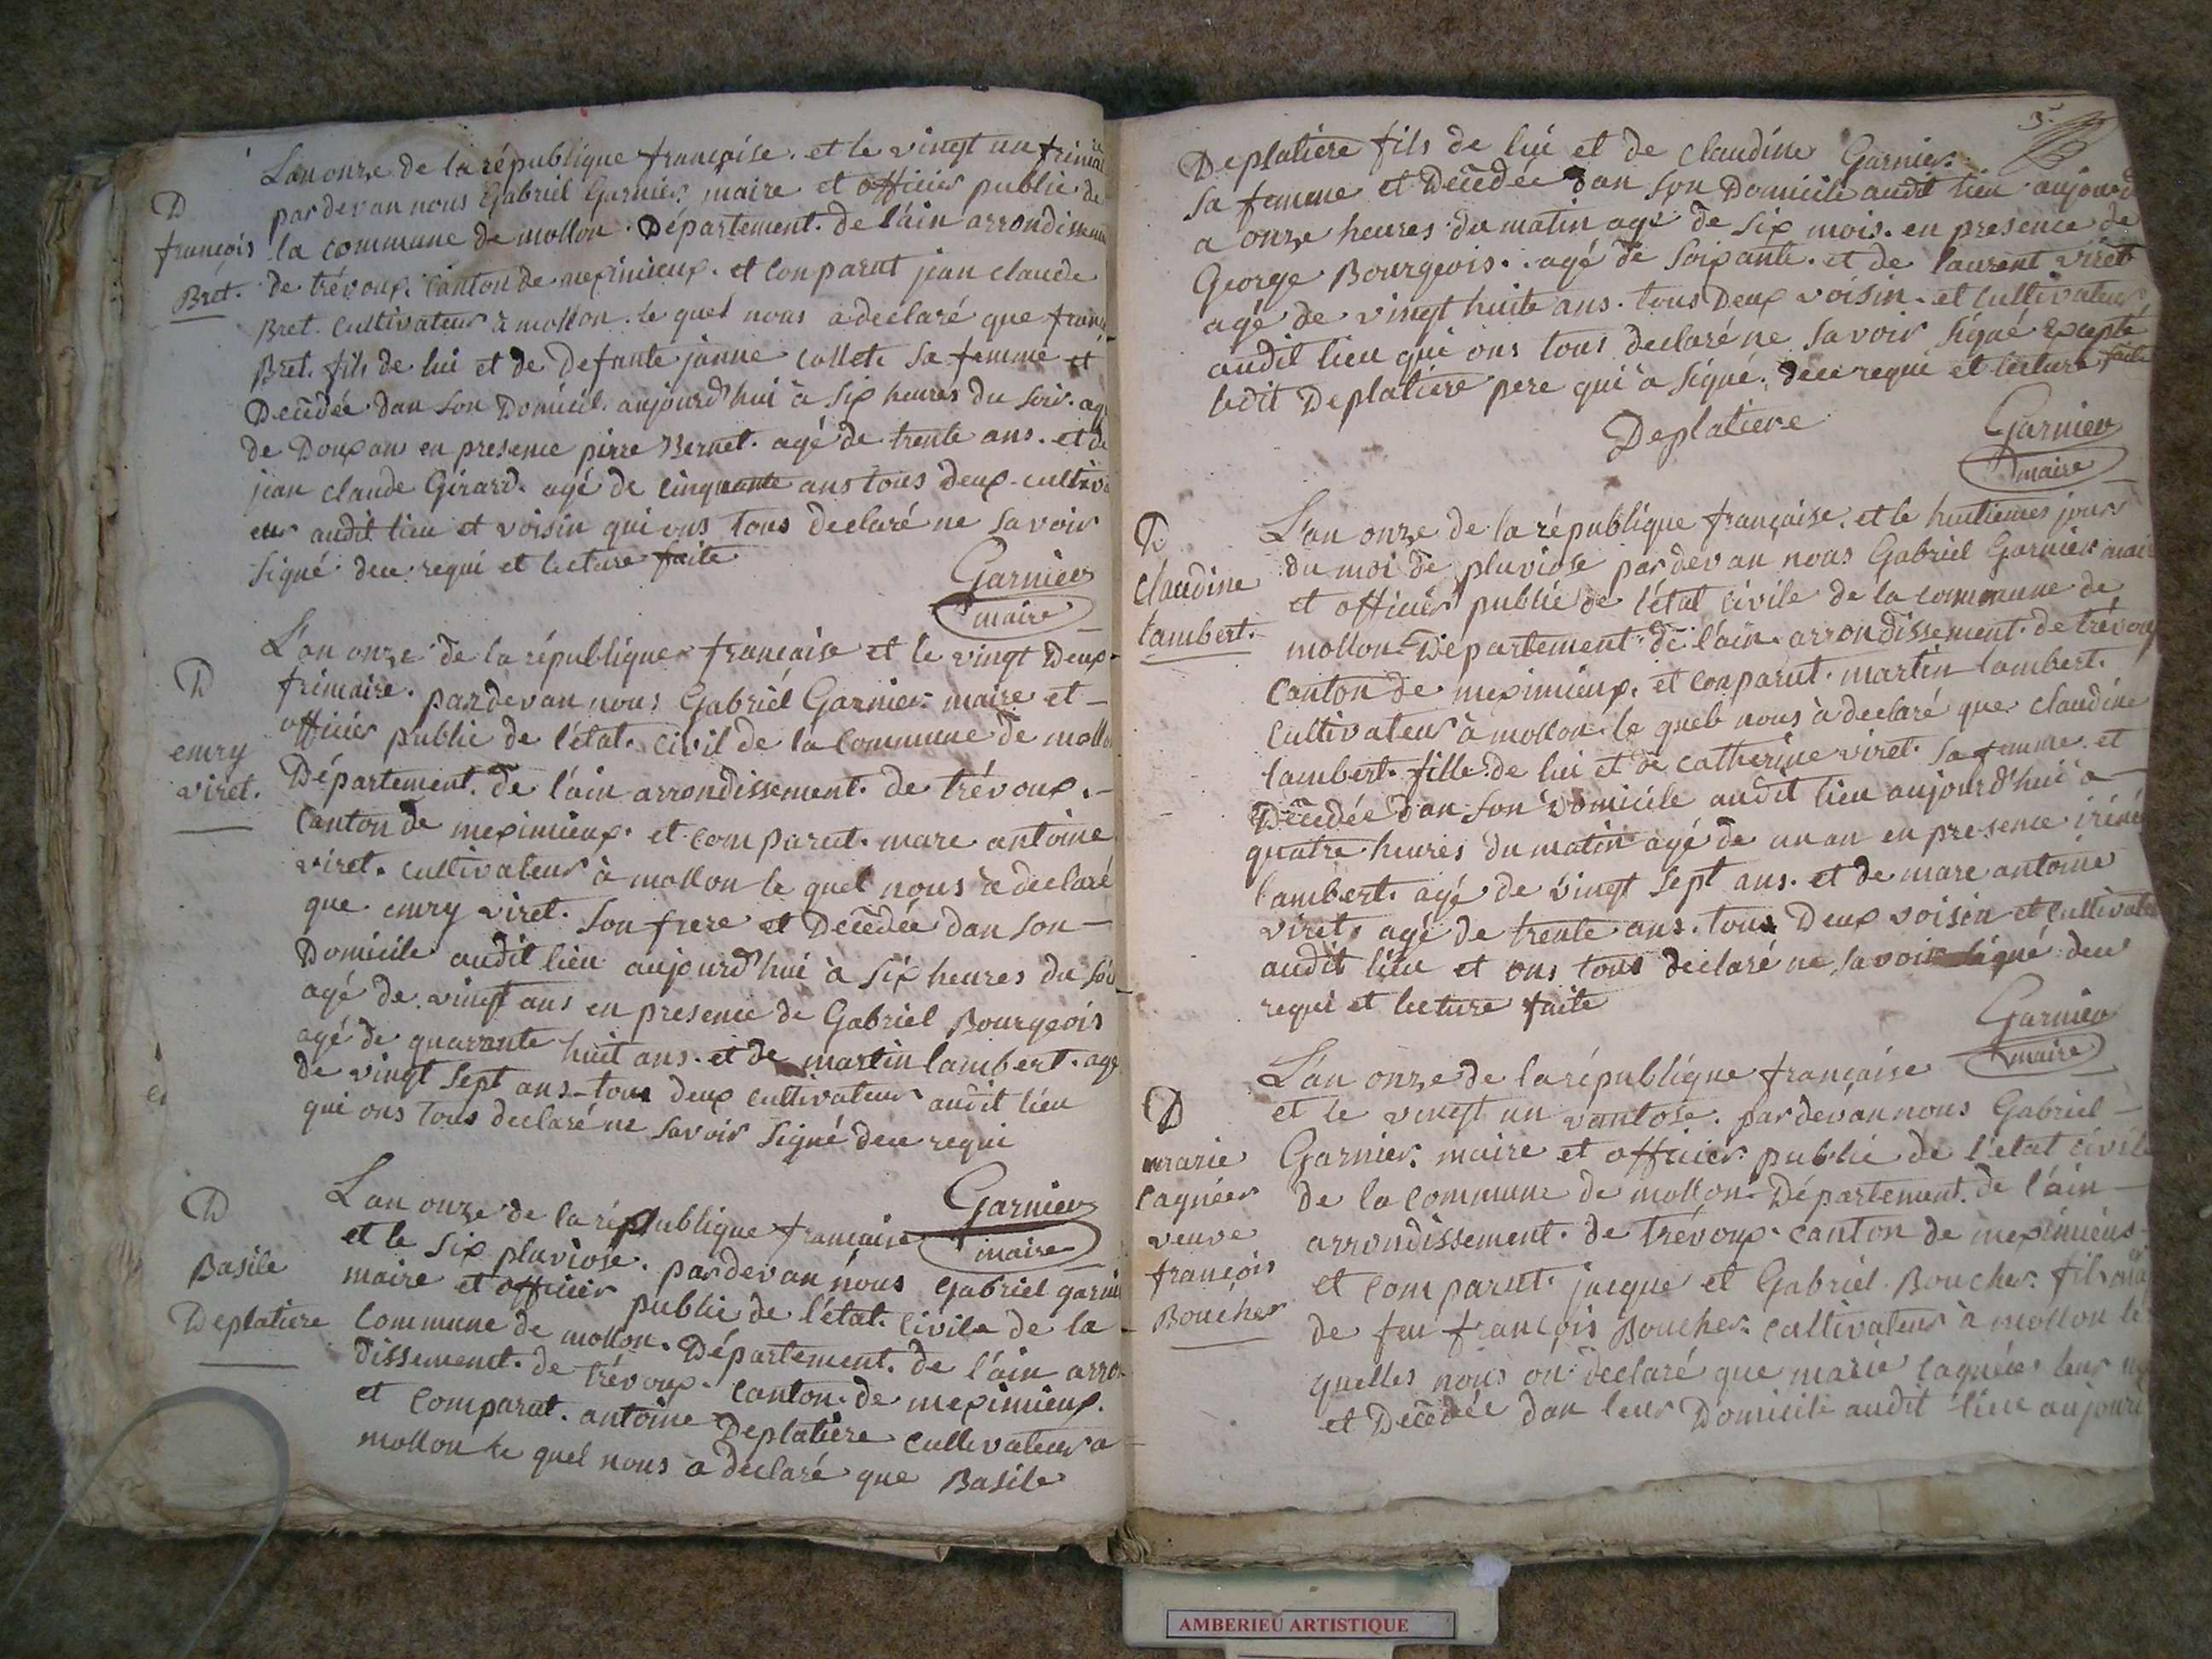 L'an onze de la république françoise. et le vingt un frimai
re
D
par devan nous Gabriel Garnier. maire et officier public de
françois
la commune de mollon. Département. de l'ain arrondissem
Bret.
de trévoux. canton de meximieux. et conparut jean claude
Bret. cultivateur à mollon. le quel nous a declaré que franc
Bret. fils de lui et de defante janne collete sa femme et
Decédée dan son Domicil. aujourd'hui à six heures du soir. agé
de Doux ans en presence pirre Bernet. agé de trente ans. et de
jean claude Girard. agé de cinquante ans tous deux cultiva
eur audit lieu et voisin qui ons tous declaré ne savoir
signé dece requi et lecture faite
Garnier
maire
L'an onze de la république francaise et le vingt Deux
D
frimaire. par devan nous Gabriel Garnier. maire et
officier public de l'état. civil de la commune de mollo
emry
viret.
Département. de l'ain arrondissement. de trévoux.
canton de meximieux. et comparut. marc antoine
viret. cultivateur à mollon le quel nous à declaré
que emry viret. son frere et Decédée dan son
Domicile audit lieu aujourd'hui à six heures du soi
agé de vingt ans en presence de Gabriel Bourgeois
agé de quarante huit ans. et de martin lambert. agé
de vingt sept ans tous deux cultivateur audit lieu
qui ons tous declaré ne savoir signé dece requi
Garnier
maire
D
L'an onze de la république francaise
et le six pluviose. par devan nous Gabriel garni
Basile
maire et officier public de l'état. civile de la
Deplatiere
commune de mollon. Département. de l'ain arron
dissement. de trévoux. canton de meximieux.
et comparut. antoine Deplatière cultivateur a
mollon le quel nous a declaré que Basile
3.
Deplatière fils de lui et de claudine Garnier.
sa femme et Decédée dan son Domicile audit lieu aujourd
a onze heures du matin agé de six mois. en presence de
George Bourgeois. agé de soixante. et de laurent viret
agé de vingt huite ans. tous Deux voisin. et cultivateur
audit lieu qui ons tous declaré ne savoir signé Excepté
ledit Deplatiere pere qui à signé. dece requi et lecture faite
Deplatiere
Garnier
maire
L'an onze de la république française. et le huitiemes jours
D
du moi de pluviose par devan nous Gabriel Garnier mair
claudine
et officier public de l'état civile de la commune de
lambert.
mollon Département. de l'ain. arrondissement. de trévoux
canton de meximieux. et conparut. martin lambert.
cultivateur à mollon. le quel nous à declaré que claudine
lambert. fille de lui et de catherine viret. sa femme. et
Decédée dan son Domicile audit lieu aujourd'hui à
quatre heures du matin agé de un an en presence iréné
lambert. agé de vingt sept ans. et de marc antoine
viret. agé de trente ans. tous Deux voisin et cultivate
audit lieu et ons tous declaré ne savoir signé dece
requi et lecture faite
Garnier
maire
L'an onze de la république française
D
et le vingt un vantose. par devan nous Gabriel
marie
Garnier. maire et officier public de l'état civile
cagnéer
de la commune de mollon Département. de l'ain
veuve
arrondissement. de trévoux. canton de meximieus
françois
et comparut. jacque et Gabriel Boucher. fils
Boucher
de feu françois Boucher. cultivateur à mollon le
quelles nous on declaré que marie cagnéer leur
et Decédée dan leur Domicile audit lieu aujourd
AMBERIEU ARTISTIQUE